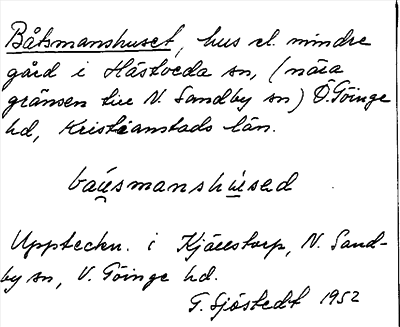 Båtsmanshuset, hus el. mindre
gård i Hästveda sn, (nära
gränsen till N. Sandby sn) Ö. Göinge
hd, Kristianstads län.
bau̯smanshu̯sad
Uppteckn. i Kjällstorp, N. Sand-
by sn, V. Göinge hd.
G. Sjöstedt 1952